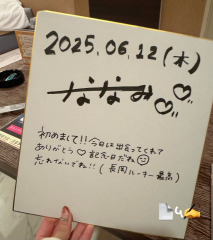 2025.06.12(木)
ななみ♡♡
初めまして!!今日は出会ってくれて
ありがとう♡記念日だね☺
忘れないでね!!(長岡ルーキー最高)